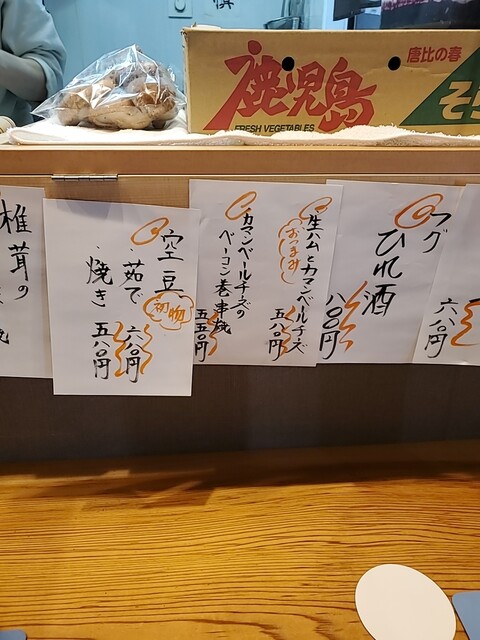 鹿児島
FRESH VEGETABLES
唐比の春
そら
フグ
ひれ酒
八〇〇円
六八〇円
生ハムとカマンベールチーズ
おつまみ
五八〇円
カマンベールチーズの
ベーコン巻串焼
五五〇円
空豆
初物
茹で
六八〇円
焼き
五八〇円
椎茸の